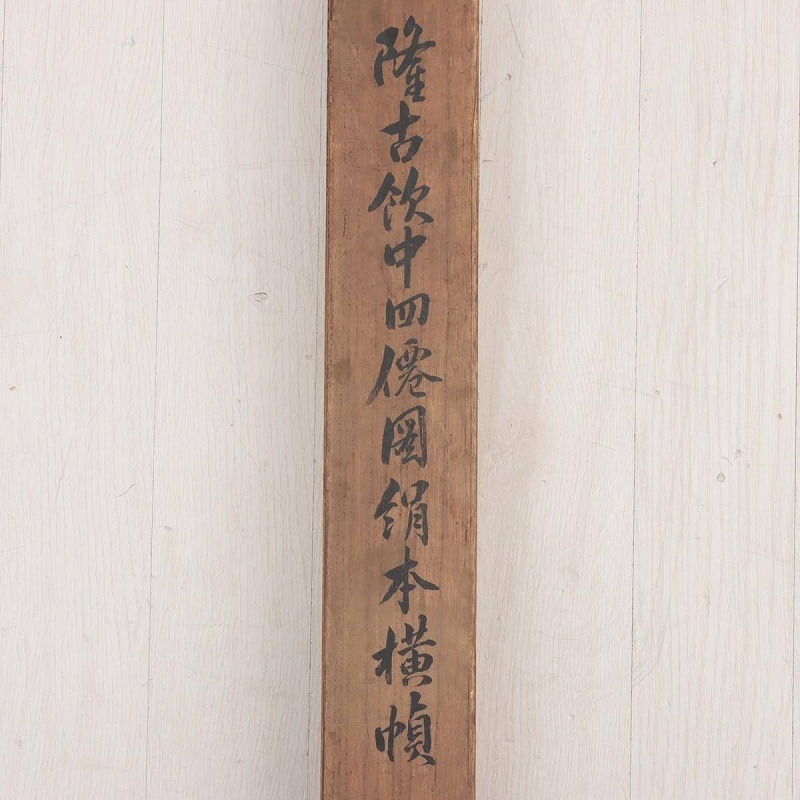 隆古飲中四僊圖絹本橫幀